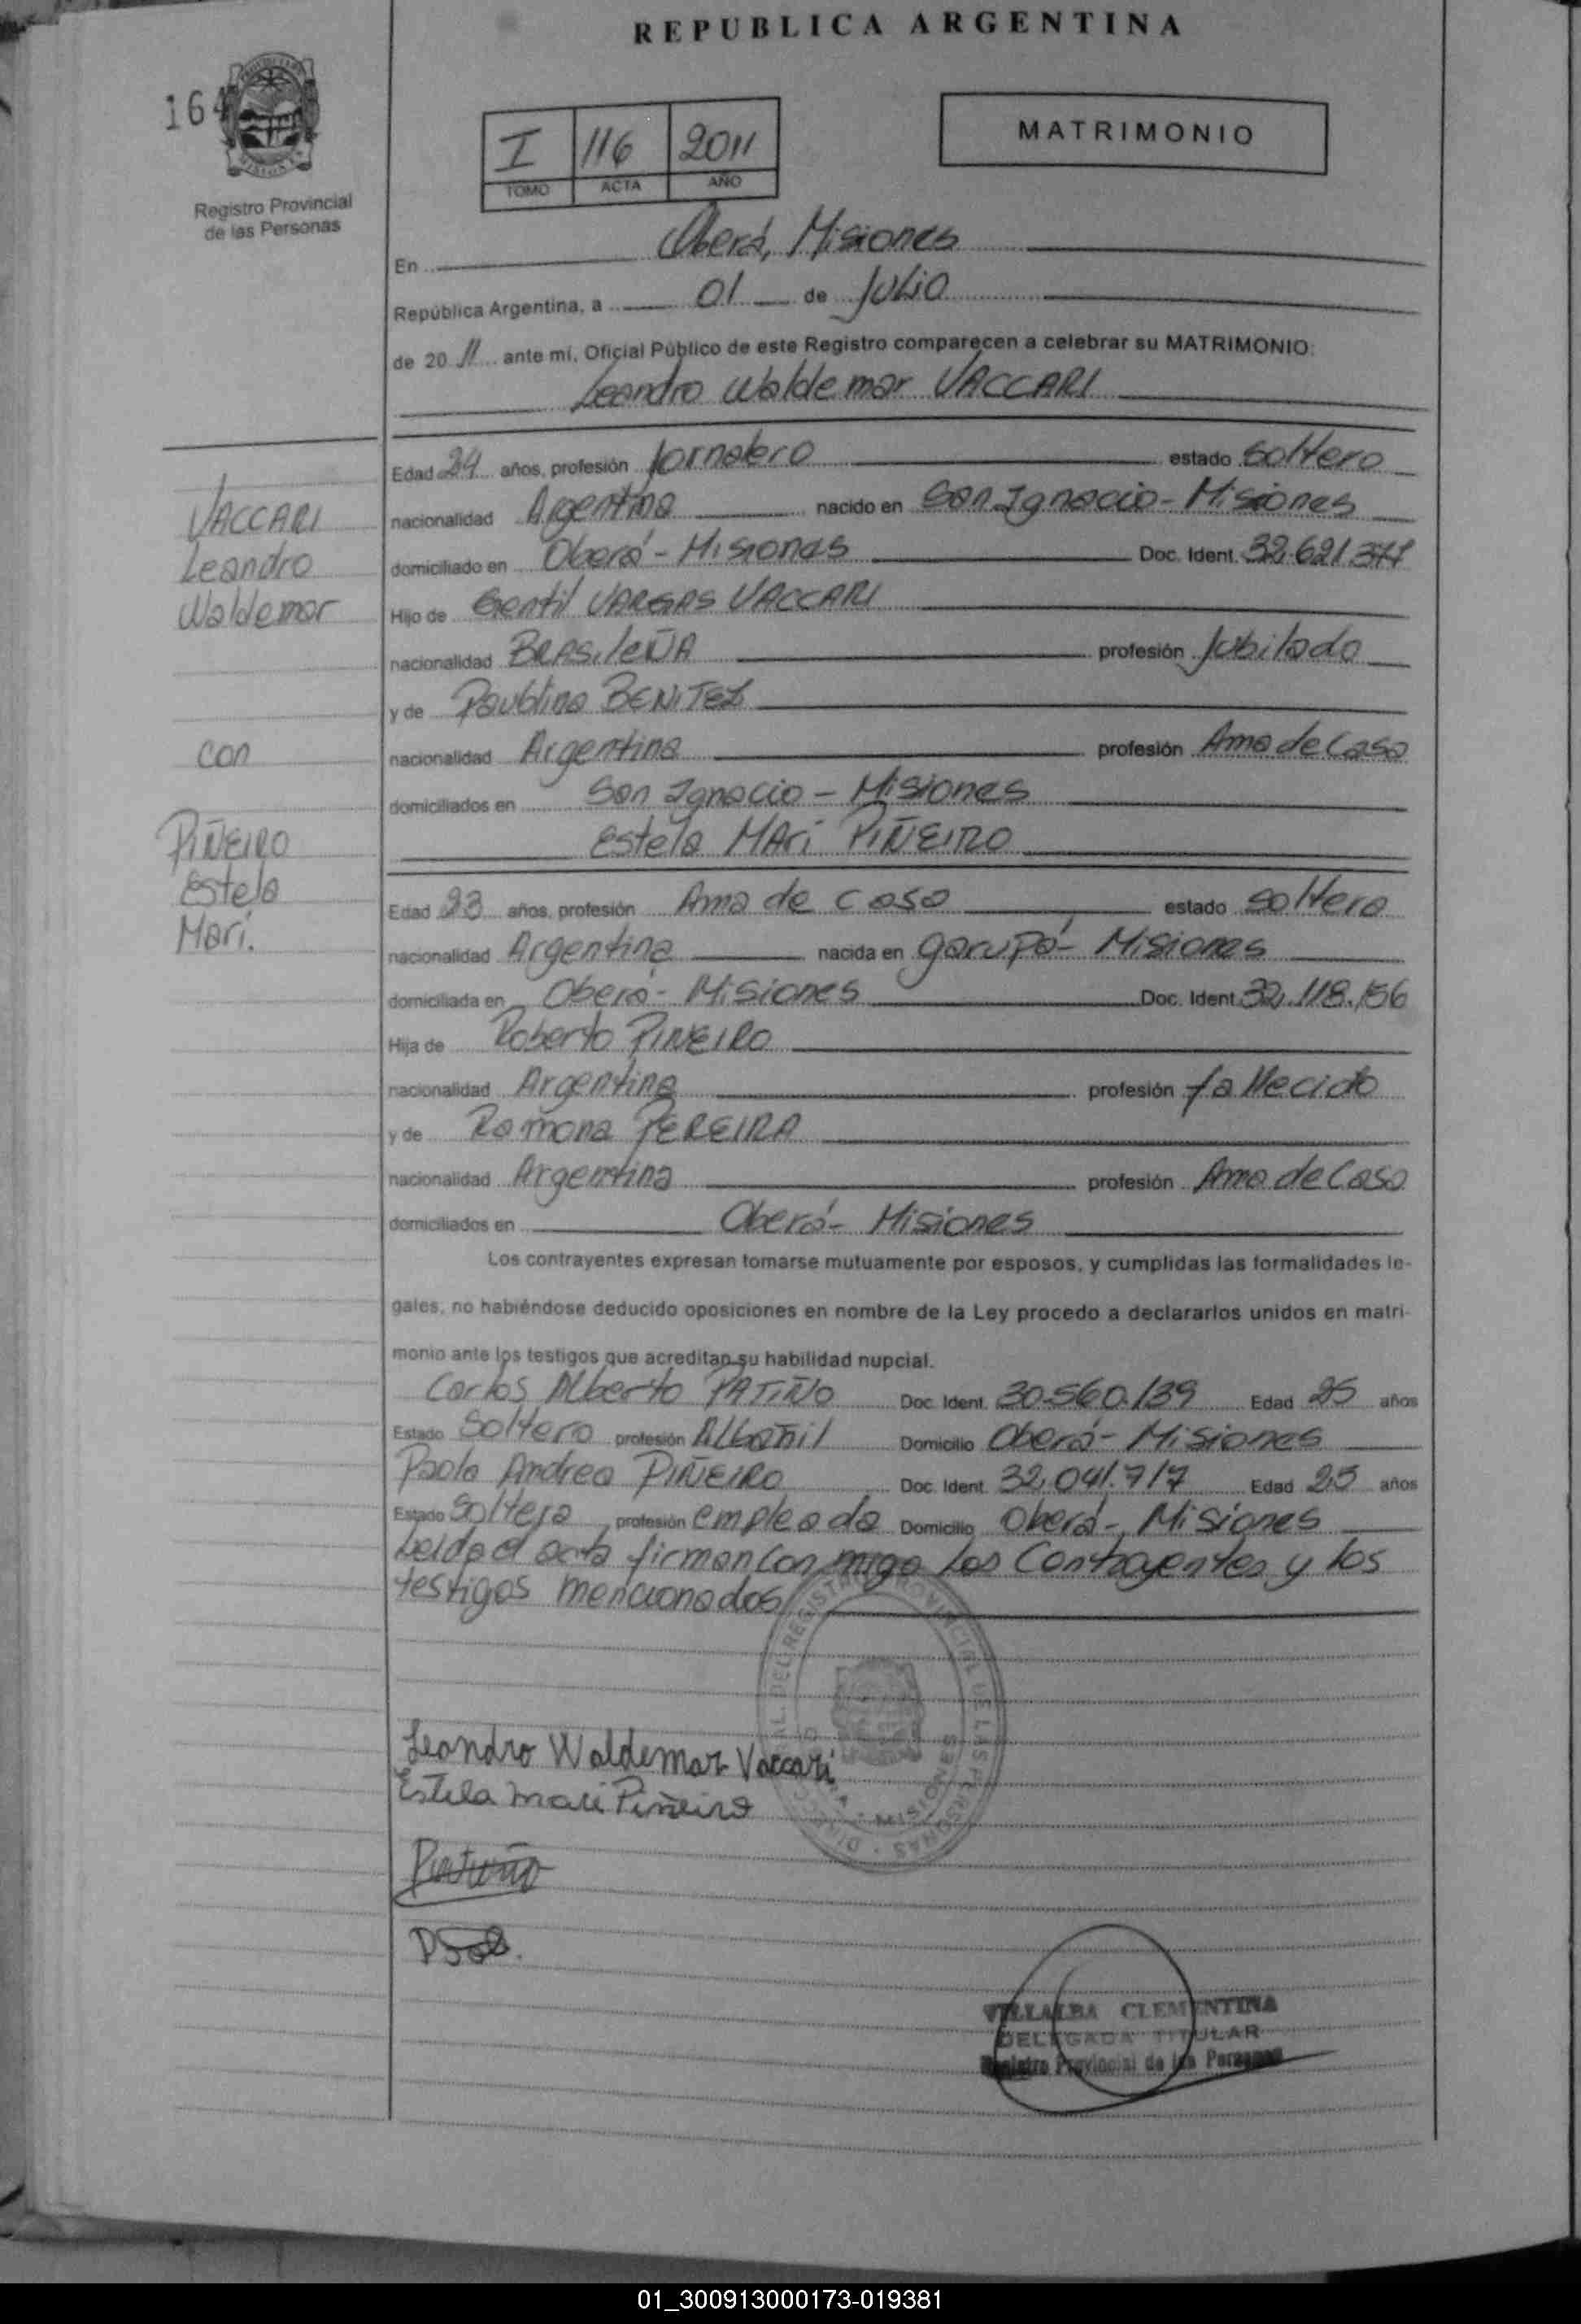 REPUBLICA ARGENTINA
164
Registro Provincial
de las Personas
I 116 2011
TOMO ACTA AÑO
MATRIMONIO
En Oberá, Misiones
República Argentina, a 01 de Julio
de 20 11 ante mí, Oficial Público de este Registro comparecen a celebrar su MATRIMONIO:
Leandro Waldemar VACCARI
Edad 24 años, profesión Jornalero estado Soltero
nacionalidad Argentina nacido en San Ignacio - Misiones
domiciliado en Oberá - Misiones Doc. Ident. 32.621.377
Hijo de Gentil VARGAS VACCARI
nacionalidad BRASILEÑA profesión Jubilado
y de Paublina BENITEZ
nacionalidad Argentina profesión Ama de Casa
domiciliados en San Ignacio - Misiones
Estela MAri PIÑEIRO
Edad 23 años, profesión Ama de Casa estado Soltera
nacionalidad Argentina nacida en Garupá - Misiones
domiciliada en Oberá - Misiones Doc. Ident. 32.118.156
Hija de Roberto PIÑEIRO
nacionalidad Argentina profesión fallecido
y de Ramona PEREIRA
nacionalidad Argentina profesión Ama de Casa
domiciliados en Oberá - Misiones
VACCARI
Leandro
Waldemar
con
PIÑEIRO
Estela
Mari.
Los contrayentes expresan tomarse mutuamente por esposos, y cumplidas las formalidades le-
gales, no habiéndose deducido oposiciones en nombre de la Ley procedo a declararlos unidos en matri-
monio ante los testigos que acreditan su habilidad nupcial.
Carlos Alberto PATIÑO Doc. Ident. 30.560.139 Edad 25 años
Estado Soltero profesión Albañil Domicilio Oberá - Misiones
Paola Andrea PIÑEIRO Doc. Ident. 32.041.717 Edad 25 años
Estado Soltera profesión empleada Domicilio Oberá - Misiones
Leida el acta firman conmigo los Contrayentes y los
testigos mencionados
Leandro Waldemar Vaccari
Estela Mari Piñeiro
Patiño
VILLALBA CLEMENTINA
DELEGADA TITULAR
Registro Provincial de las Personas
01_300913000173-019381